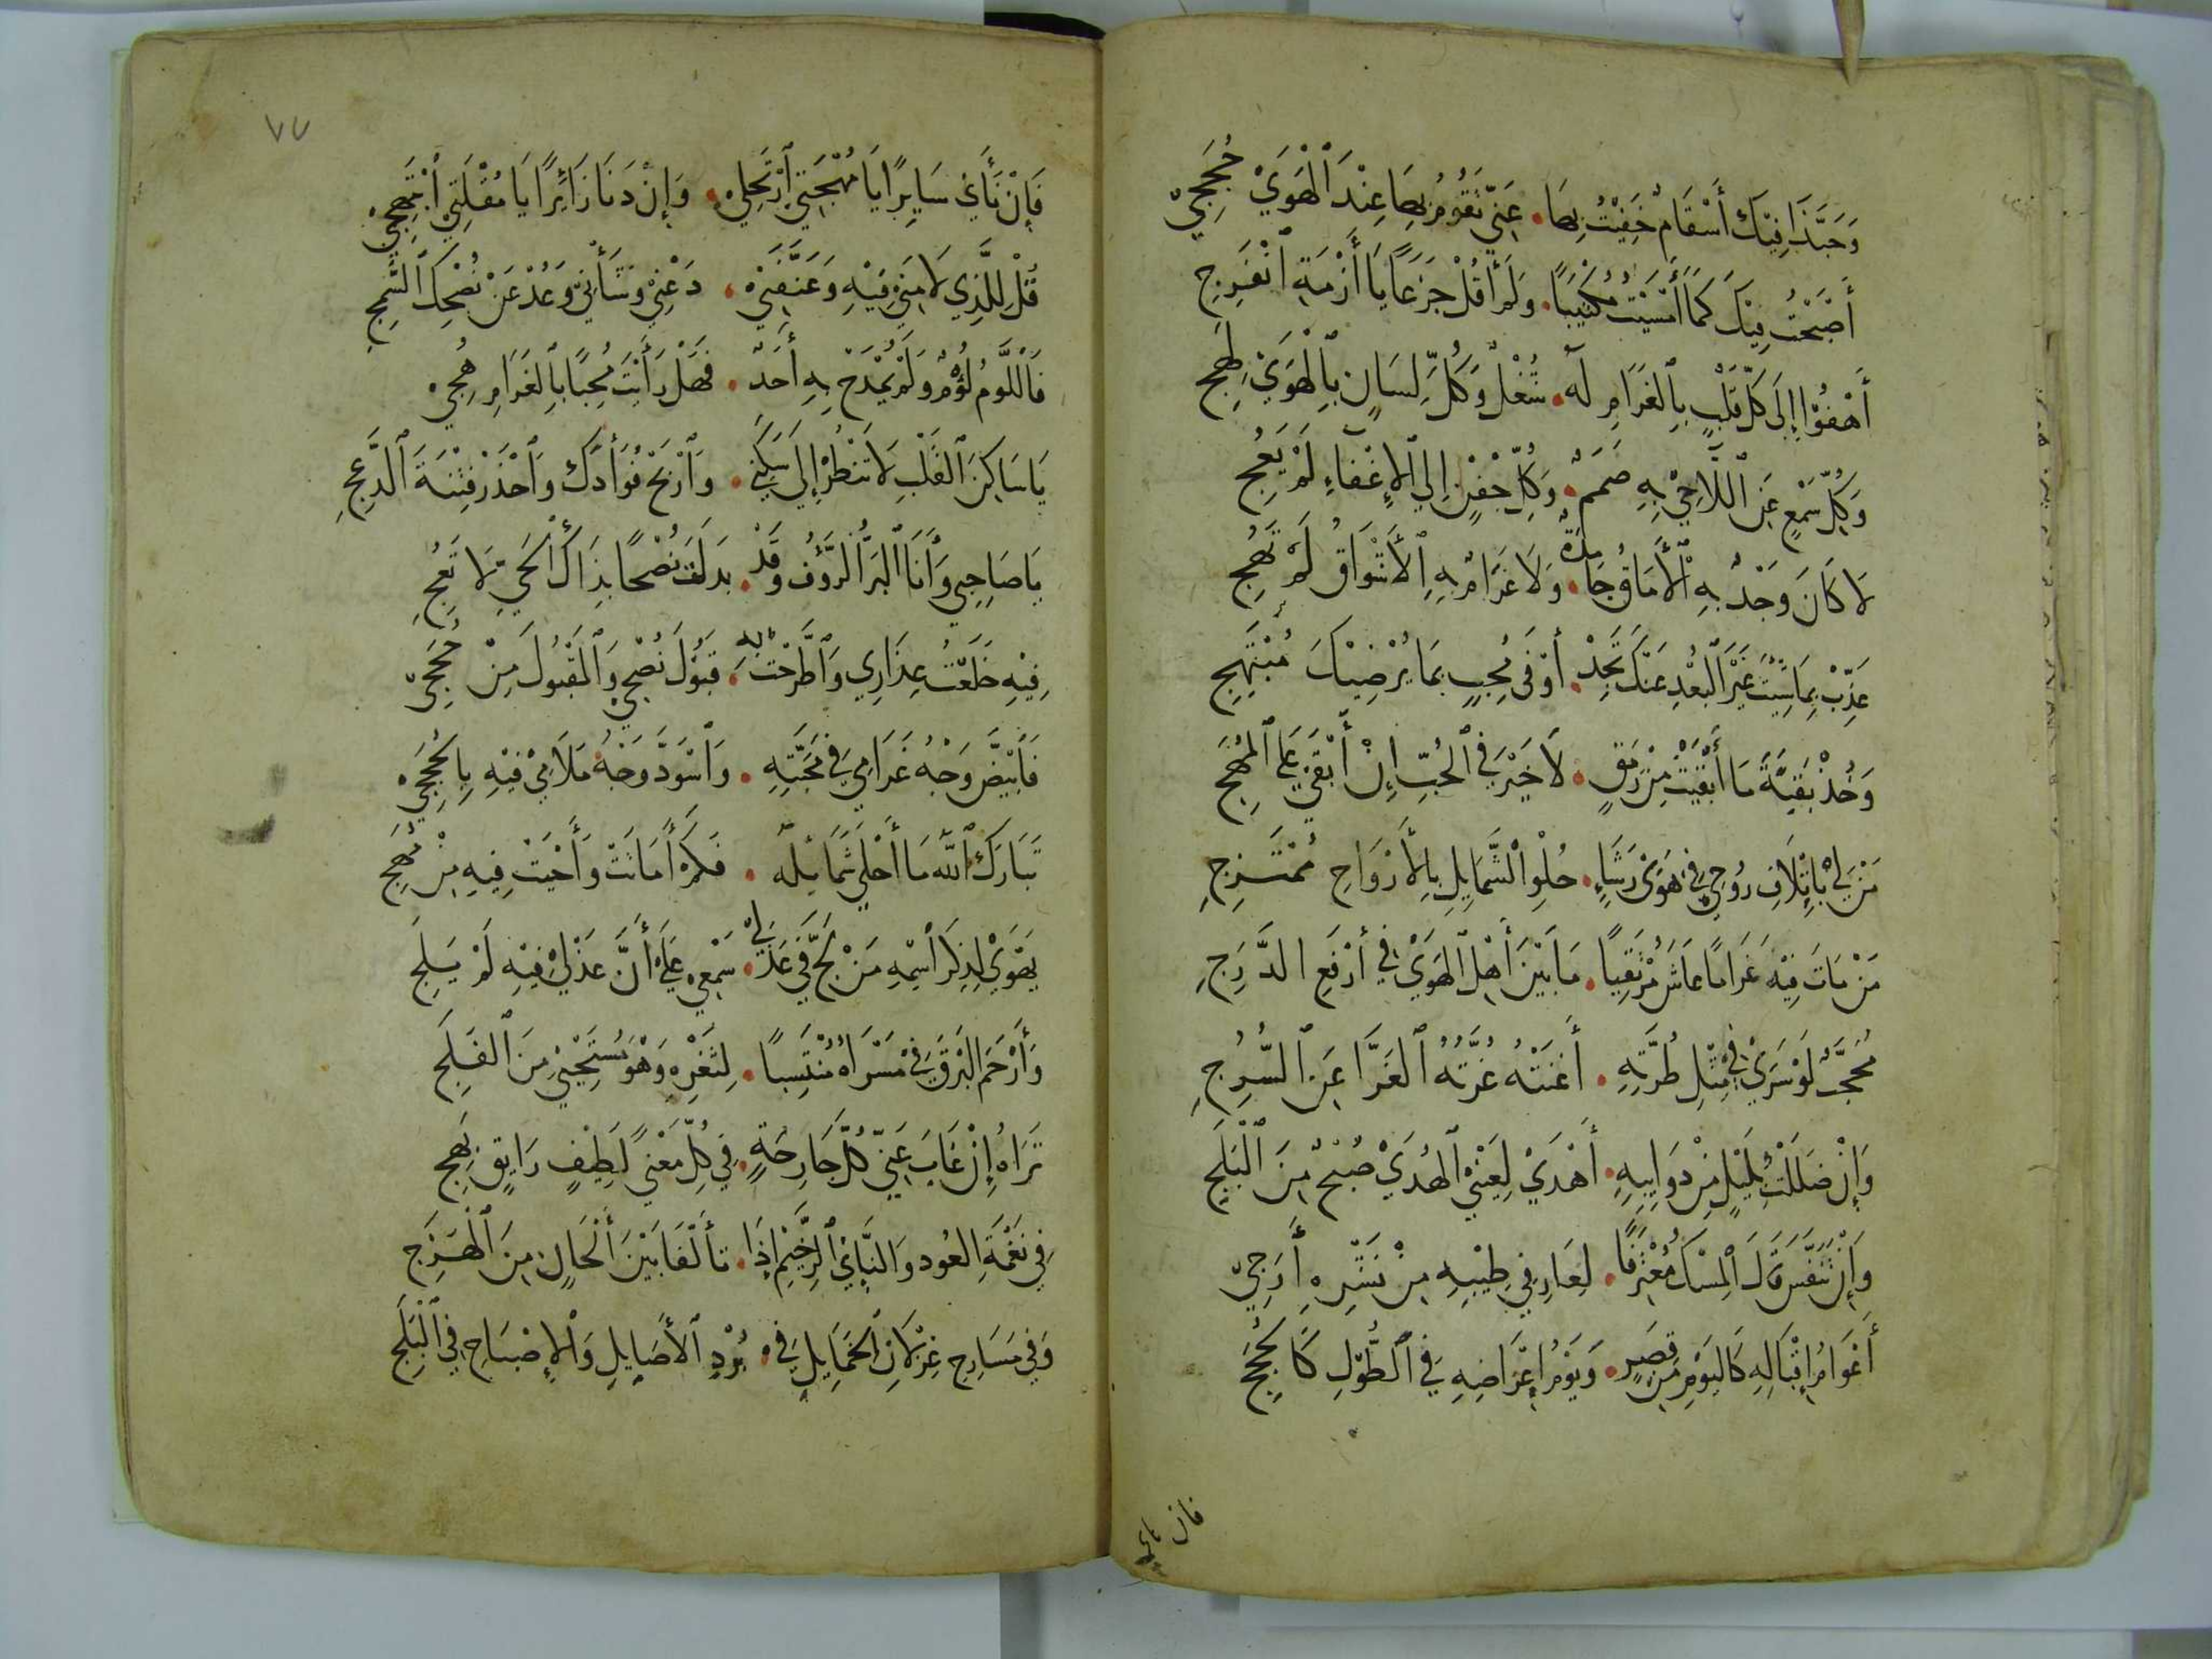 وَحَبَّذَا فِيْكَ أَسْقَامٌ خَفِيْتُ بِهَا . عَنِّيْ تَقُوْمُ بِهَا عِنْدَ ٱلْهَوَيْ حُجَجِيْ
أَصْبَحْتُ فِيْكَ كَمَا أَمْسَيْتُ مُكْتَئِبًا . وَلَمْ أَقُلْ جَزَعًا يَا أَزْمَةُ ٱنْفَرِجِ
أَهْفُوْا إِلَى كُلِّ قَلْبٍ بِٱلْغَرَامِ لَهُ . شُغْلٌ وَكُلِّ لِسَانٍ بِٱلْهَوَيْ لَهِجِ
وَكُلِّ سَمْعٍ عَنِ ٱللَّاحِيْ بِهِ صَمَمٌ . وَكُلِّ جَفْنٍ إِلَي ٱلْإِغْفَاءِ لَمْ يَعُجِ
لَا كَانَ وَجْدٌ بِهِ ٱلْأَمَاقُ جَامِدَةٌ . وَلَا غَرَامٌ بِهِ ٱلْأَشْوَاقُ لَمْ تَهِجِ
عَذِّبْ بِمَا شِئْتَ غَيْرَ ٱلْبُعْدِ عَنْكَ تَجِدْ . أَوْفَى مُحِبٍّ بِمَا يُرْضِيْكَ مُبْتَهِجِ
وَخُذْ بَقِيَّةَ مَا أَبْقَيْتَ مِنْ رَمَقٍ . لَا خَيْرَ فِي ٱلْحُبِّ إِنْ أَبْقَيْ عَلَي ٱلْمُهَجِ
مَنْ لِيْ بِإِتْلَافِ رُوْحِيْ فِيْ هَوَيْ رَشَاءٍ . حُلْوِ ٱلشَّمَايِلِ بِٱلْأَرْوَاحِ مُمْتَزِجِ
مَنْ مَاتَ فِيْهِ غَرَامًا عَاشَ مُرْتَقِيًا . مَا بَيْنَ أَهْلِ ٱلْهَوَيْ فِيْ أَرْفَعِ الدَّرَجِ
مُحَجَّبٌ لَوْ سَرَيْ فِيْ مِثْلِ طُرَّتِهِ . أَغْنَتْهُ غُرَّتُهُ ٱلْغَرَّا عَنِ ٱلسُّرُجِ
وَإِنْ ضَلَلْتُ بِلَيْلٍ مِنْ ذَوَايِبِهِ . أَهْدَيْ لِعَيْنِيْ ٱلْهُدَيْ صُبْحٌ مِنَ ٱلْبَلَجِ
وَإِنْ تَنَفَّسَ قَالَ ٱلْمِسْكُ مُعْتَرِفًا . لِعَارِفِيْ طِيْبِهِ مِنْ نَشْرِهِ أَرَجِيْ
أَعْوَامُ إِقْبَالِهِ كَالْيَوْمِ مِنْ قِصَرٍ . وَيَوْمُ إِعْرَاضِهِ فِي ٱلطُّوْلِ كَٱلْحِجَجِ
فان ناي
٧٧
فَإِنْ نَأَيْ سَايِرًا يَا مُهْجَتِيْ ٱرْتَحِلِيْ . وَإِنْ دَنَا زَائِرًا يَا مُقْلَتِيْ ٱبْتَهِجِيْ
قُلْ لِلَّذِيْ لَامَنِيْ فِيْهِ وَعَنَّفَنِيْ . دَعْنِيْ وَشَأْنِيْ وَعُدْ عَنْ نُصْحِكَ ٱلسَّمِجِ
فَٱللَّوْمُ لُؤْمٌ وَلَمْ يُمْدَحْ بِهِ أَحَدٌ . فَهَلْ رَأَيْتَ مُحِبًّا بِٱلْغَرَامِ هُجِيْ
يَا سَاكِنَ ٱلْقَلْبِ لَا تَنْظُرْ إِلَى سَكَنِيْ . وَٱرْبَحْ فُوَأدَكَ وَٱحْذَرْ فِتْنَةَ ٱلدَّعَجِ
يَا صَاحِبِيْ وَأَنَا ٱلْبَرُّ ٱلرَّؤُفُ وَقَدْ . بَذَلْتُ نُصْحًا بِذَاكَ ٱلْحَيِّ لَا تَعُجِ
فِيْهِ خَلَعْتُ عِذَارِيْ وَٱطَّرَحْتُ بِهِ . قَبُوْلَ نُصْحِيْ وَٱلْمَقْبُوْلَ مِنْ حُجَجِيْ
فَٱبْيَضَّ وَجْهُ غَرَامِيْ فِيْ مَحَبَّتِهِ . وَٱسْوَدَّ وَجْهُ مَلَامِيْ فِيْهِ بِٱلْحُجَجِيْ
تَبَارَكَ ٱللَّهُ مَا أَحْلَيْ شَمَائِلَهُ . فَكَمْ أَمَاتَتْ وَأَحْيَتْ فِيْهِ مِنْ مُهَجِ
يَهْوَيْ لِذِكْرِ ٱسْمِهِ مَنْ لَجَّ فِيْ عَذَلِيْ . سَمْعِيْ عَلَيْ أَنَّ عَذْلِيْ فِيْهِ لَمْ يَلِجِ
وَأَرْحَمُ ٱلْبَرْقَ فِيْ مَسْرَاهُ مُنْتَسِبًا . لِثَغْرِهِ وَهْوَ مُسْتَحْيِيْ مِنَ ٱلْفَلَجِ
تَرَاهُ إِنْ غَابَ عَنِّيْ كُلُّ جَارِحَةٍ . فِيْ كُلِّ مَعْنًي لَطِيْفٍ رَايِقٍ بَهِجِ
فِيْ نَغْمَةِ العُوْدِ وَٱلنَّايِ ٱلرَّخِيْمِ إِذَا . تَأَلَّفَا بَيْنَ أَلْحَانٍ مِنَ ٱلْهَزَجِ
وَفِيْ مَسَارِحِ غِزْلَانِ ٱلْخَمَايِلِ فِيْ . بُرْدِ ٱلْأَصَايِلِ وَٱلْإِصْبَاحِ فِي ٱلْبَلَجِ